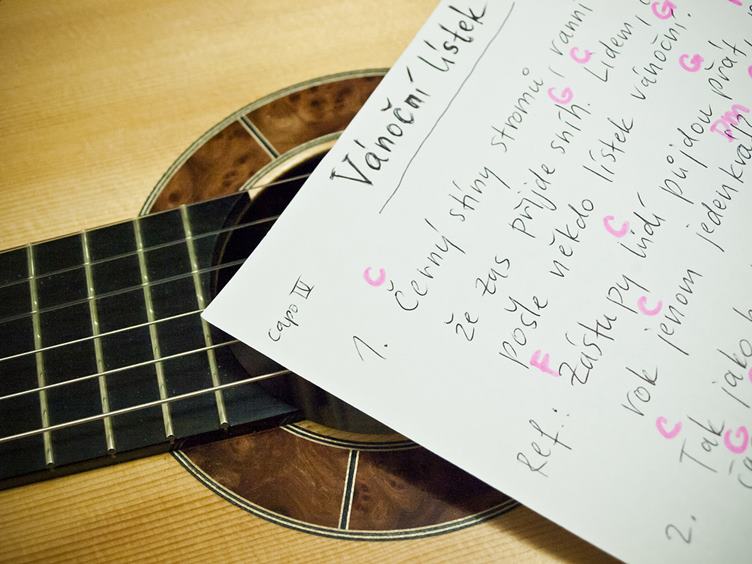 Vánoční lístek
Capo III
C G C G
1. Černý stíny stromů, ranní
že zas přijde sníh. Lidem,
G
pošle někdo lístek vánoční?
F C Dm
Ref.: Zástupy lidí půjdou přát,
C
rok jenom jedenkrát
C G
2. Tak jako